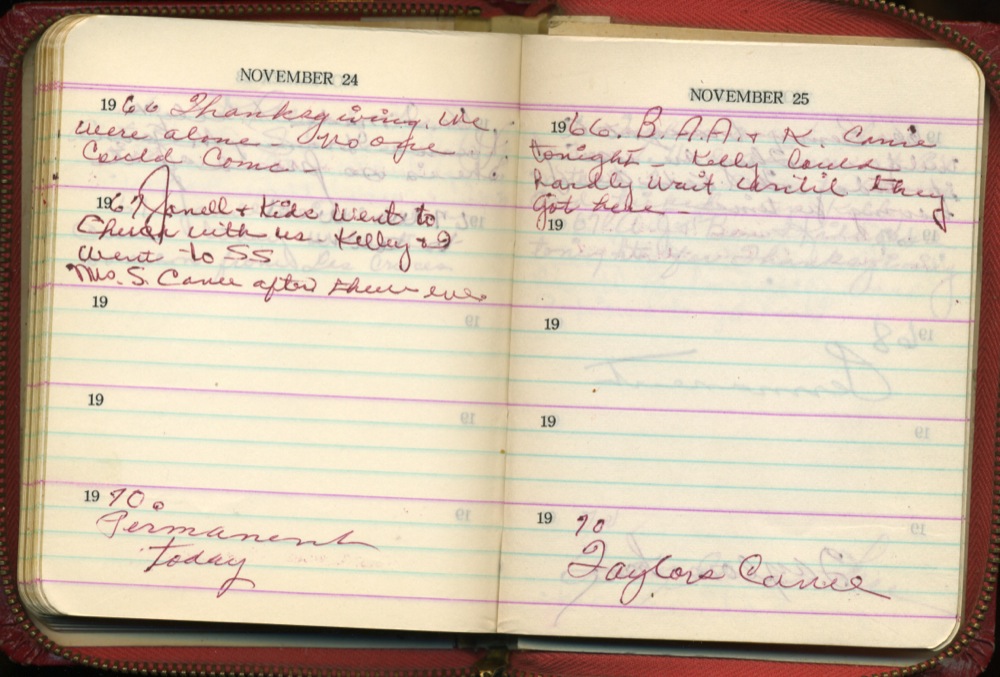 NOVEMBER 24
1966 Thanksgiving. We
were alone - no one
could come -
1967 Jonell + Kids went to
Church with us Kelley + I
went to SS
Mrs. S. Came after them eve.
19
19
1970
Permanent
today
NOVEMBER 25
1966. B. A.A. + K. Came
tonight - Kelly could
hardly wait until they
got here -
19
19
19
19 70
Taylors Came